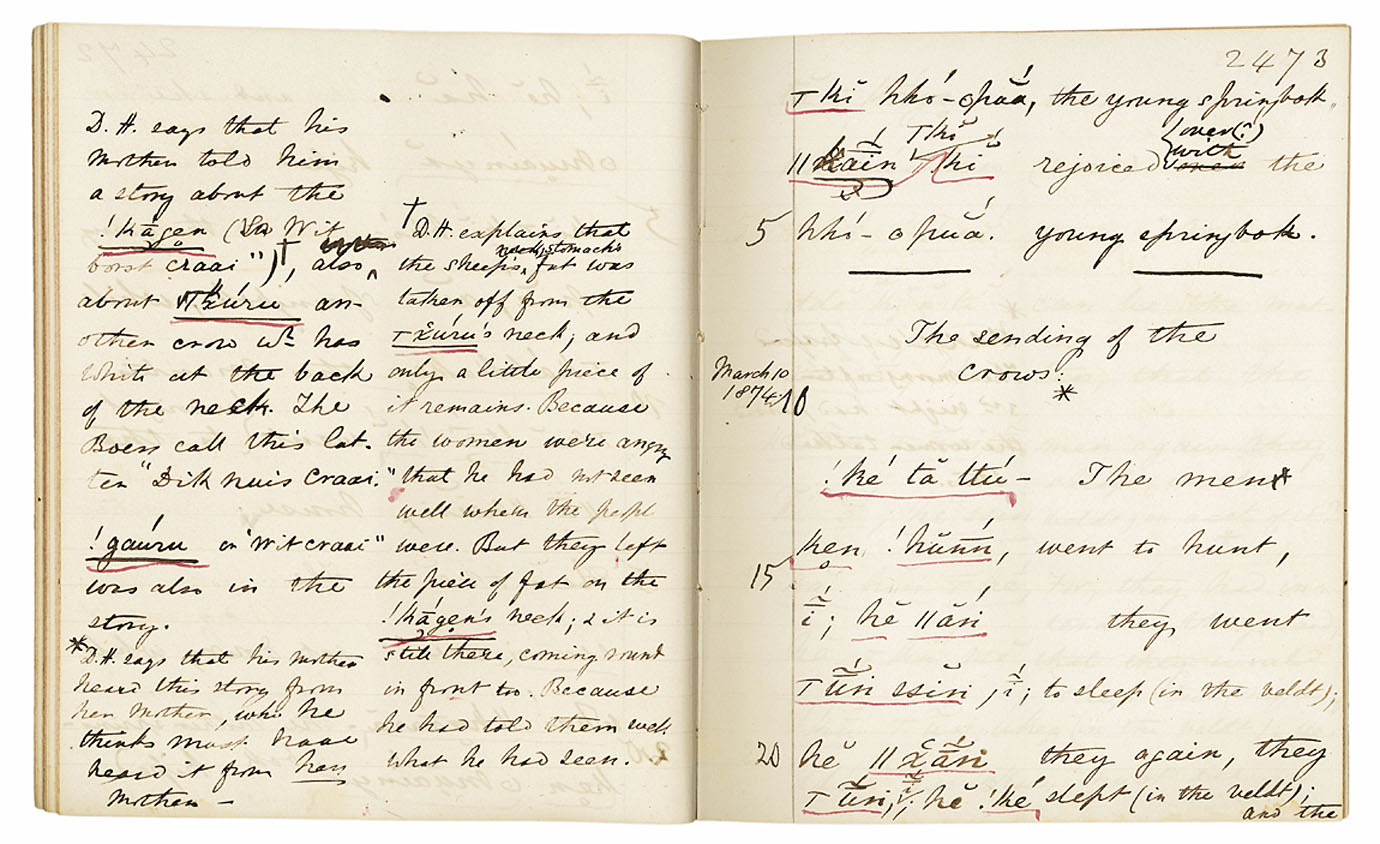 D. H. says that his
mother told him
a story about the
!kāgen (
borst craai") †, also
about an-
other crow wh. has
white at the back
of the neck. The
Boers call this lat-
ter "Dik nuis Craai."
!gaúru or "Wit craai"
was also in the
story.
* D. H. says that his mother
heard this story from
her mother, who he
thinks must have
heard it from her
mother —
† D. H. explains that
neck stomach's
the sheep's fat was
taken off from the
neck; and
only a little piece of
it remains. Because
the women were angry
that he had not seen
well where the people
were. But they left
the piece of fat on the
!kágen's neck; & it is
still there, coming round
in front too. Because
he had told them well
what he had seen.
2473
the young springbok
over (?)
with
rejoiced the
5 young springbok.
The sending of the
crows: *
March 10
1874. 10
!ké tā ttú – The men *
ken !hāńn, went to hunt,
15
ĩ; hĕ ǁāń they went
to sleep (in the veldt);
20 hĕ they again, they
hĕ !ké slept (in the veldt);
and the